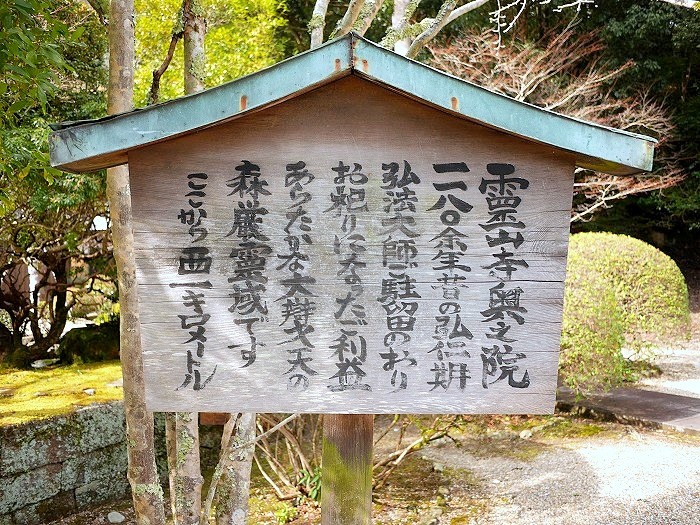 霊山寺奥之院
一一八〇余年昔の弘仁期
弘法大師ご駐留のおり
お祀りになったご利益
あらたかな大辯才天の
森厳霊域です
ここから西一きろメートル